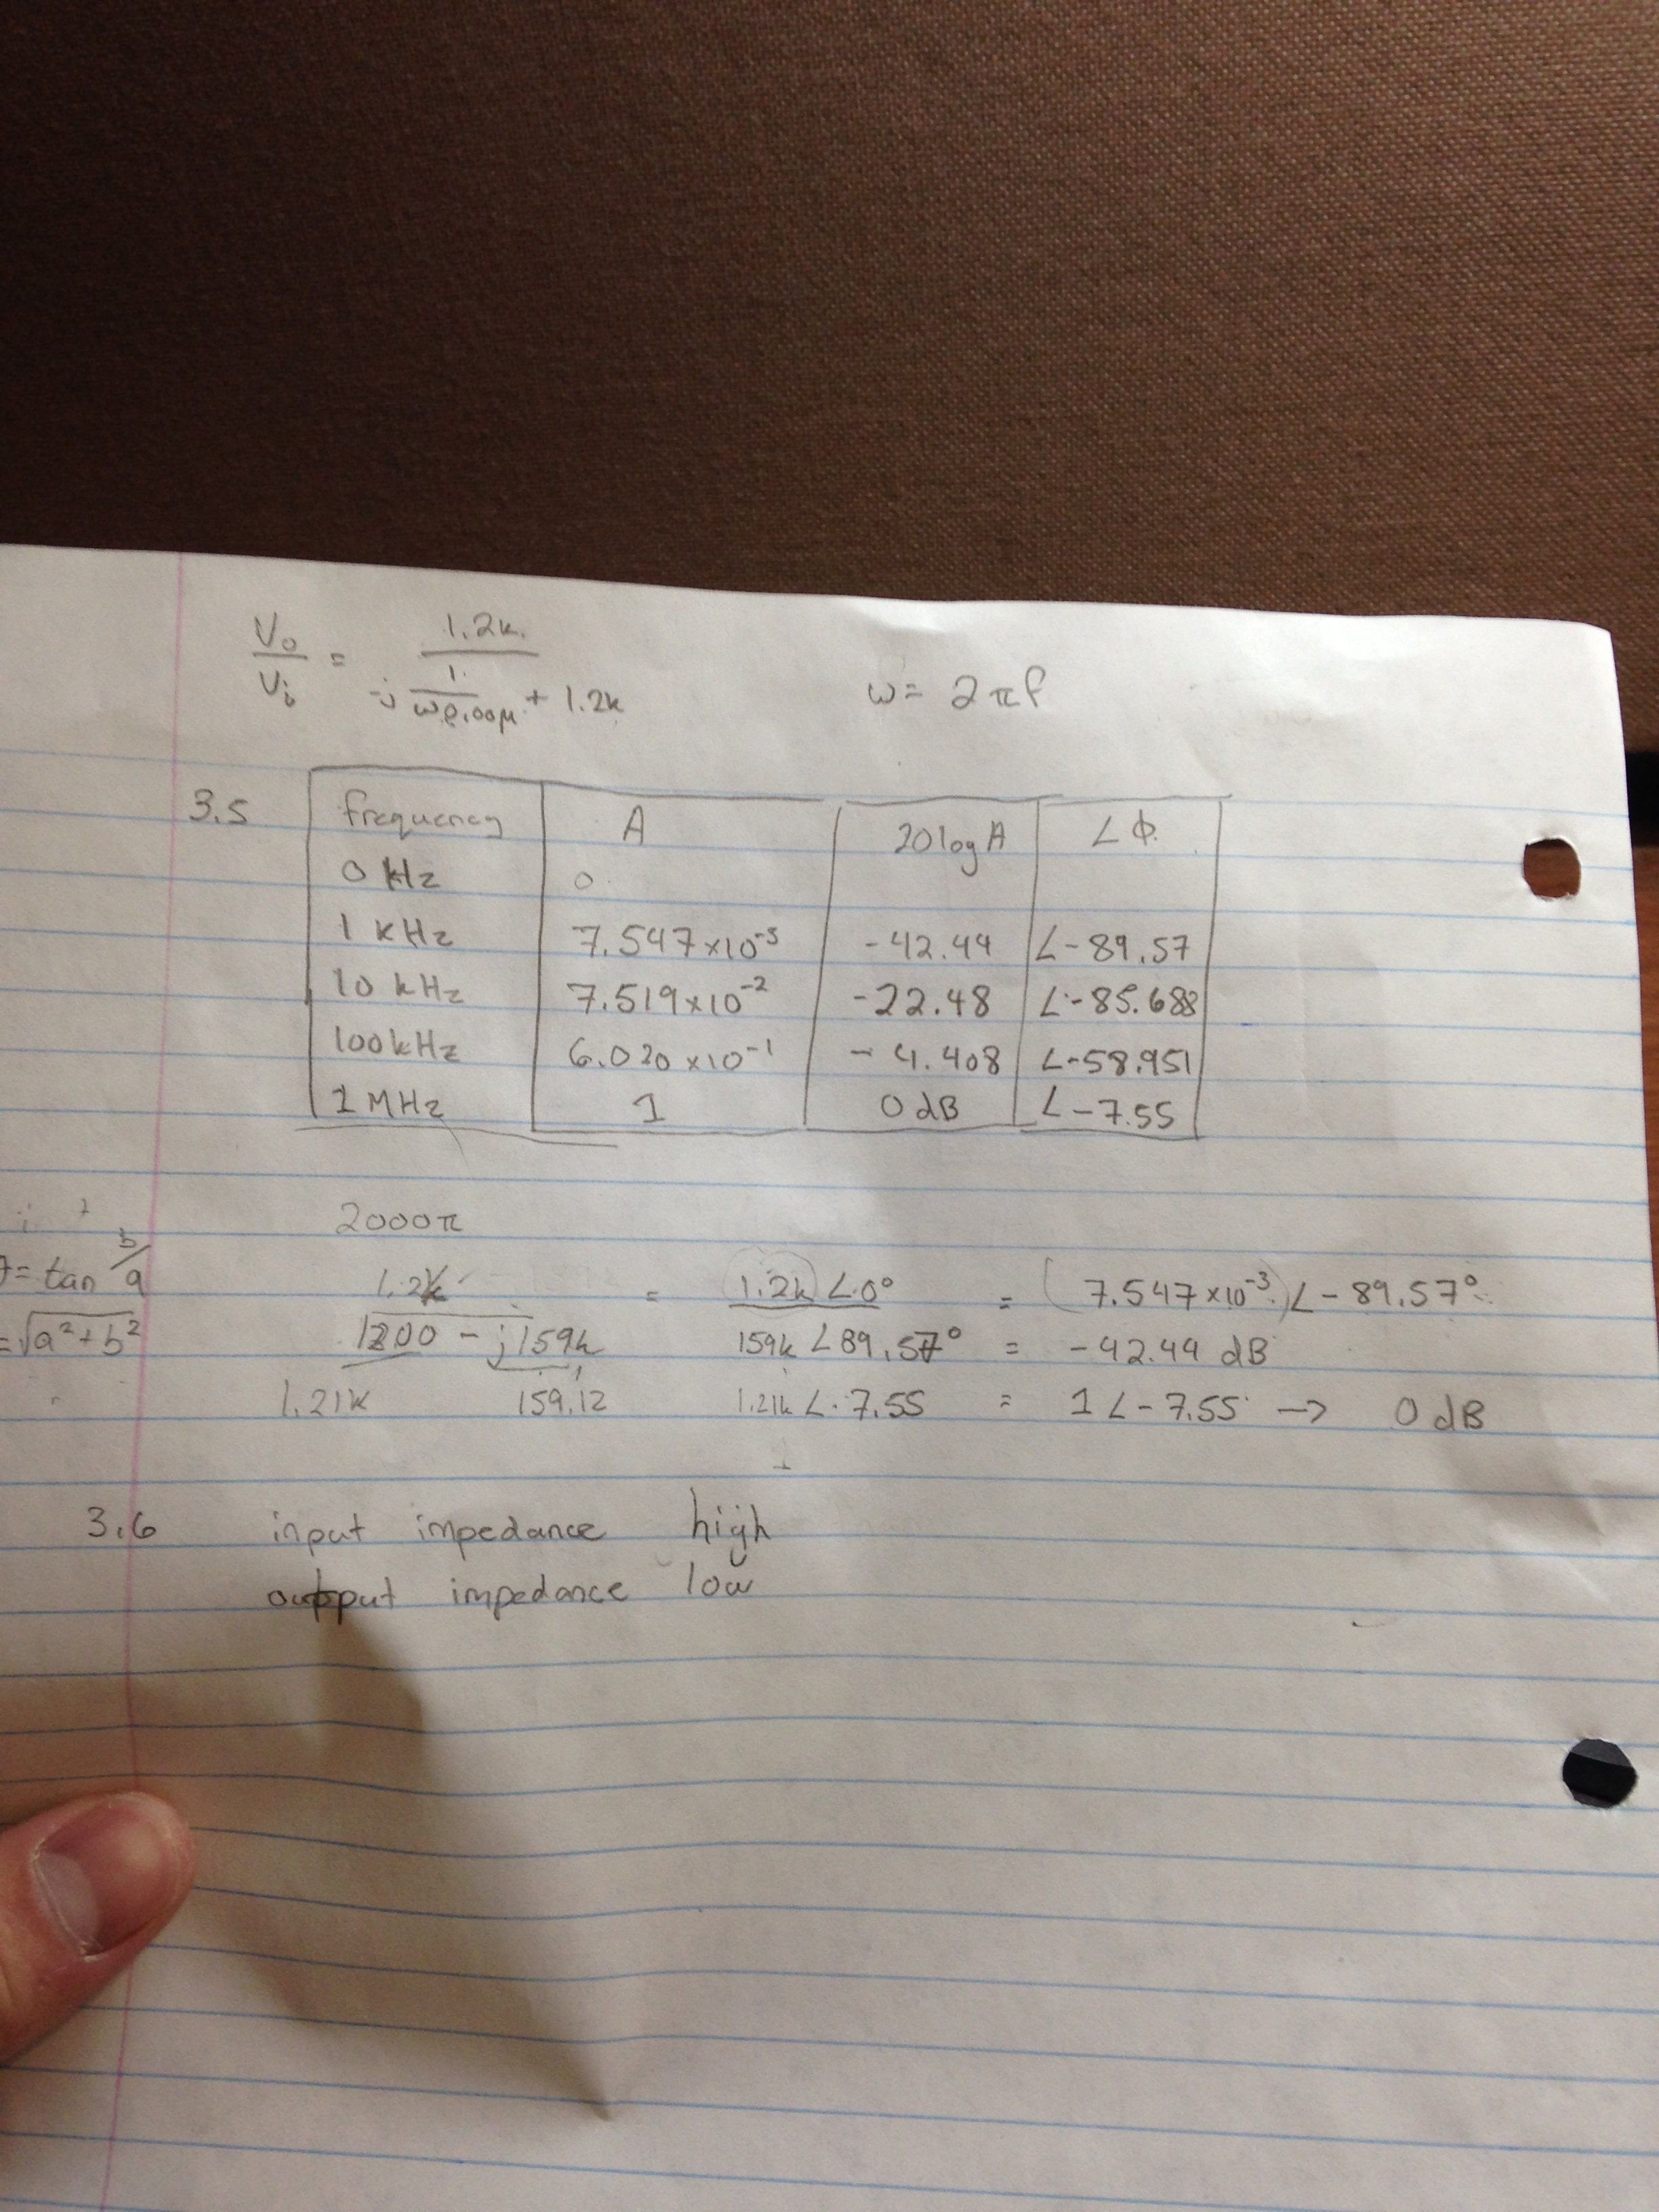 Vo/Vi = 1.2k / (-j 1/(ω0.00μ) + 1.2k)
ω = 2πf
3.5
frequency A 20logA ∠Φ
0 kHz 0
1 kHz 7.547×10⁻³ -42.44 ∠-89.57
10 kHz 7.519×10⁻² -22.48 ∠-85.688
100kHz 6.020×10⁻¹ -4.408 ∠-58.951
1 MHz 1 0 dB ∠-7.55
2000π
= tan b/a
= √(a²+b²)
1.2k / (1200 - j159k) = 1.2k∠0° / 159k∠89.57° = (7.547×10⁻³)∠-89.57°
= -42.44 dB
1.21k 159.12 1.21k∠-7.55 = 1∠-7.55 → 0 dB
3.6 input impedance high
output impedance low